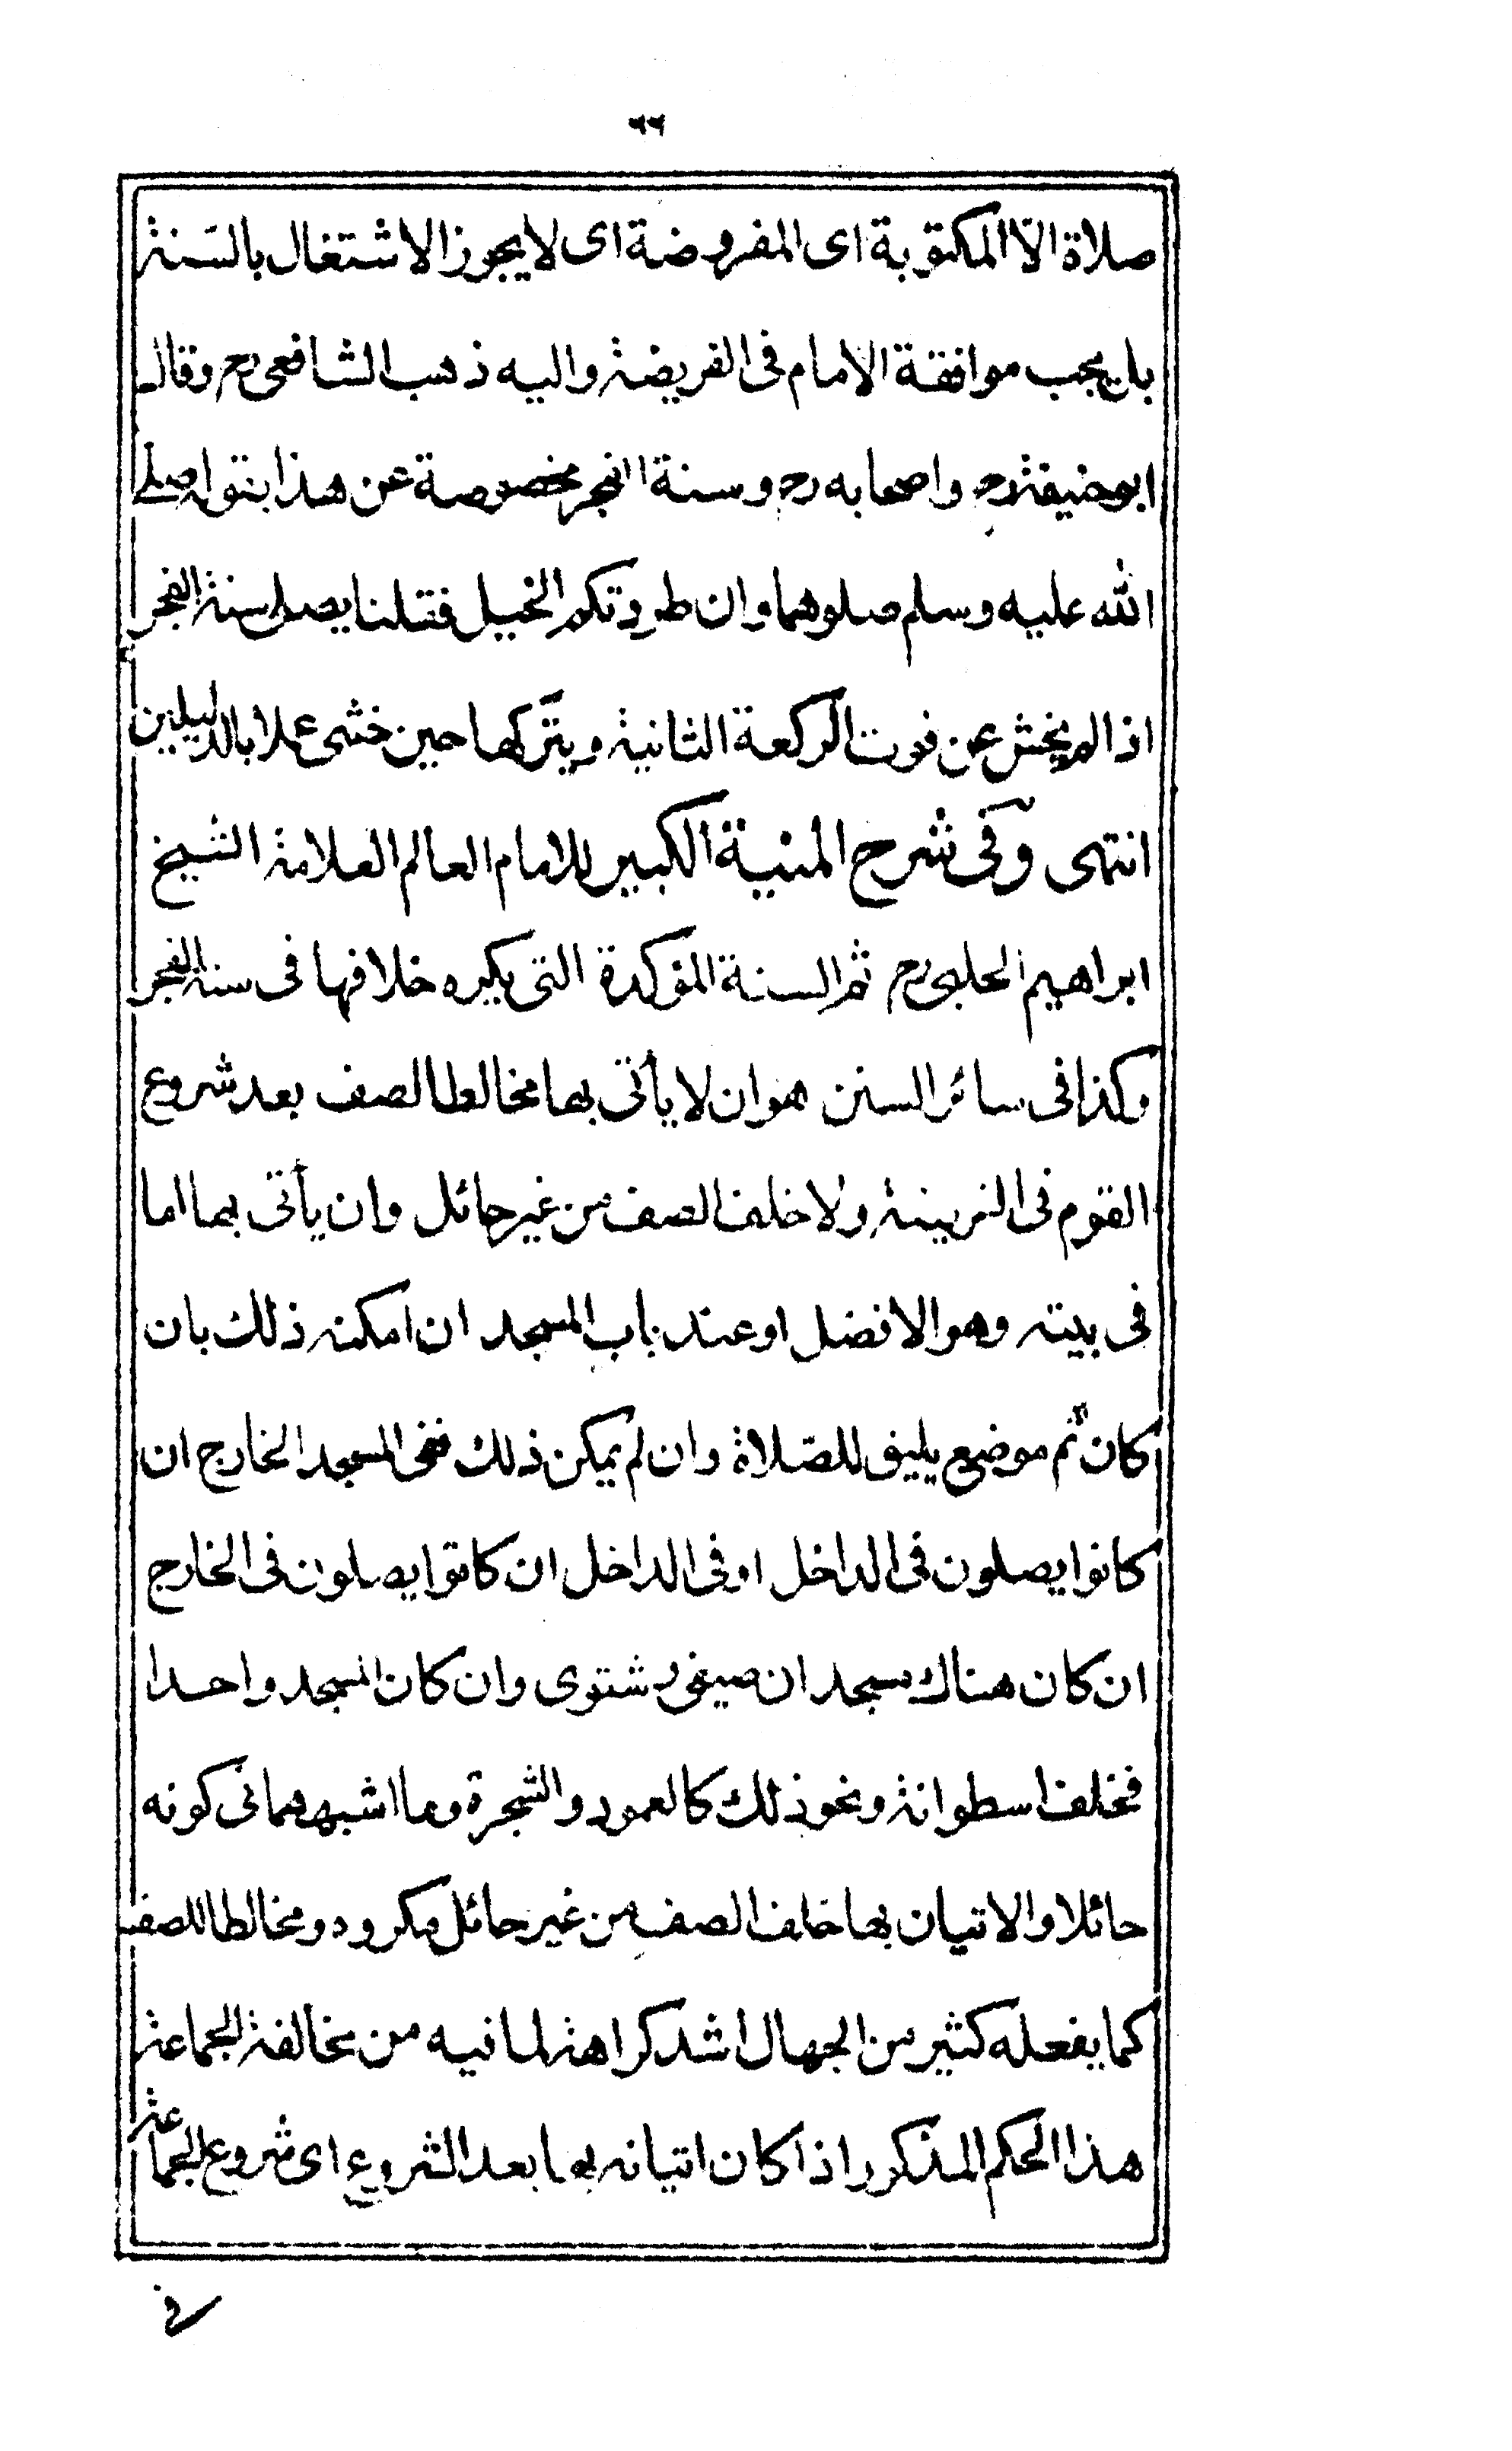 ٦٦
صلاة الاّ المكتوبة اى المفروضة اى لا يجوز الاشتغال بالسّنة
بل يجب موافقة الامام فى الفريضة واليه ذهب الشافعى رح وقال
ابو حنيفة رح واصحابه رح وسنة الفجر مخصوصة عن هذا بقوله صلى
الله عليه وسلم صلوهما وان طردتكم الخيل فقلنا يصلى سنة الفجر
اذا لم يخش عن فوت الركعة الثانية ويتركها حين خشى عملا بالدليلين
انتهى وفى شرح المنية الكبير للامام العالم العلامة الشيخ
ابراهيم الحلبى رح ثم السنة المؤكدة التى يكره خلافها فى سنة الفجر
وكذا فى سائر السنن هو ان لا يأتى بها مخالطا لصف بعد شروع
القوم فى الفريضة ولا خلف الصف من غير حائل وان يأتى بها اما
فى بيته وهو الافضل او عند باب المسجد ان امكنه ذلك بان
كان ثم موضع يليق للصّلاة وان لم يمكن ذلك ففى المسجد الخارج ان
كانوا يصلون فى الداخل او فى الداخل ان كانوا يصلون فى الخارج
ان كان هناك مسجدان صيفى وشتوى وان كان المسجد واحدا
فخلف اسطوانة ونحو ذلك كالعمود والشجرة وما اشبههما فى كونه
حائلا والاتيان بها خلف الصف من غير حائل مكروه ومخالطا للصف
كما يفعله كثير من الجهال اشد كراهة لما فيه من مخالفة الجماعة
هذا الحكم المذكور اذا كان اتيانه بها بعد الشروع اى شروع الجماعة
فى